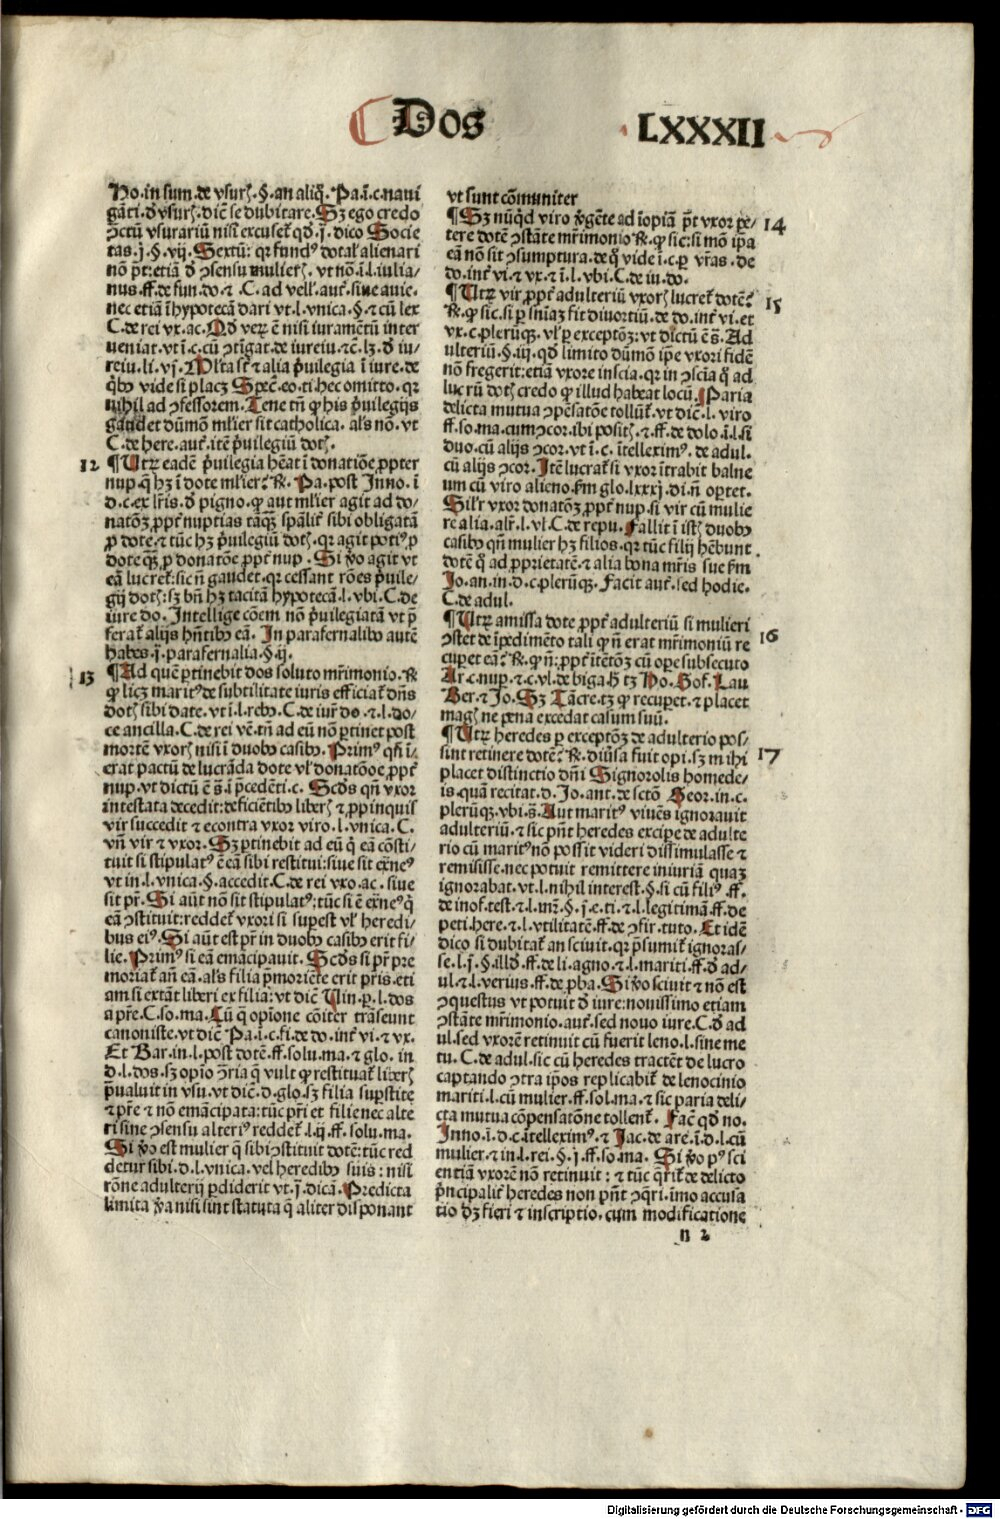 Dos LXXXII
Ho. in sum. de vsurꝭ. §. an aliq̊. Pa. ī. c. naui
gāti. đ vsurꝭ. dic̄ se dubitare. Sꝫ ego credo
ꝯctū vsurariū nisi excuset᷑ qđ. j̄. dico Socie
tas. j̄. §. vij. Sextū: qꝛ fundꝰ dotaľ alienari
nō p̄t: etiā đ ꝯsensu mulierꝭ. vt nō. ī. l. iulia-
nus. ff. de fun. do. ⁊ .C. ad vell'. aut̄. siue auie.
nec etiā ī hypotecā dari vt. l. vnica. §. ⁊ cū lex
C. de rei vx. ac. Qđ verꝝ ē nisi iuramētū inter
ueniat. vt ī. c. cū ꝯtīgat. de iureiu. ⁊c̄. lꝫ. đ iu-
reiu. li. vj. Ml'ta st̄ ⁊ alia p̄uilegia ī iure. de
q̄bꝰ vide si placꝫ Spec̄. eo. ti. hec omitto. qꝛ
nihil ad ꝯfessorem. Tene tn̄ ꝙ his p̄uilegijs
gaudet dūmō ml'ier sit catholica. al's nō. vt
C. de here. aut̄. itē p̄uilegiū dotꝭ.
12 ¶ Utꝝ eadē p̄uilegia hēat ī donatiōe ꝓpter
nup. q̄ hꝫ ī dote ml'ier? ℟. Pa. post Inno. ī
d. c. ex lr̄is. đ pigno. ꝙ aut ml'ier agit ad do-
natōꝫ ꝓpt̄ nuptias tāqꝫ sp̄alit̄ sibi obligatā
ꝓ dote. ⁊ tūc hꝫ p̄uilegiū dotꝭ. qꝛ agit potiꝰ ꝓ
dote qꝫ ꝓ donatōe ꝓpt̄ nup. Si ꝟo agit vt
eā lucret᷑: sic n̄ gaudet. qꝛ cessant rōes p̄uile-
gij dotꝭ: sꝫ bn̄ hꝫ tacitā hypotecā. l. vbi. C. de
iure do. Intellige cōem nō p̄uilegiatā vt p̄
ferat᷑ alijs hn̄tibꝰ eā. In parafernalibꝰ autē
habes. j̄. parafernalia. §. ij.
13 ¶ Ad quē ꝑtinebit dos soluto mr̄imonio. ℟
ꝙ licꝫ maritꝰ de subtilitate iuris efficiat᷑ dn̄s
dotꝭ sibi date. vt ī. l. rebꝰ. C. de iur̄ do. ⁊. l. do-
ce ancilla. C. de rei vē. tn̄ ad eū nō ꝑtinet post
mortē vxorꝭ nisi ī duobꝰ casibꝰ. Primꝰ qn̄ ī-
erat pactū de lucrāda dote vl' donatōe ꝓpt̄
nup. vt dictū ē s̄. ī p̄cedēti. c. Scđs qn̄ vxor
intestata decedit: deficiētibꝰ liberꝭ ⁊ ꝓpinquis
vir succedit ⁊ econtra vxor viro. l. vnica. C.
vn̄ vir ⁊ vxor. Sꝫ ꝑtinebit ad eū q̄ eā cōsti-
tuit si stipulatꝰ ē eā sibi restitui: siue sit ex̄neꝰ
vt in. l. vnica. §. accedit. C. de rei vxo. ac. siue
sit pr̄. Si aūt nō sit stipulatꝰ: tūc si ē ex̄neꝰ q̄
eā ꝯstituit: reddet᷑ vxori si supest vl' heredi-
bus eiꝰ. Si aūt est pr̄ in duobꝰ casibꝰ erit fi-
lie. Primꝰ si eā emācipauit. Scđs si pr̄ pre
moriat᷑ an̄ eā. al's filia p̄moriēte erit pr̄is. eti
am si extāt liberi ex filia: vt dic̄ Cin. ꝑ. l. dos
a pr̄e. C. so. ma. Cū q̄ opione cōiter trāseunt
canoniste. vt dic̄ Pa. ī. c. fi. de do. int̄ vi. ⁊ vx.
Et Bar. in. l. post dotē. ff. solu. ma. ⁊ glo. in
d. l. dos. sꝫ opio ꝯ̄ria q̄ vult ꝙ restituat᷑ liberꝭ
p̄ualuit in vsu. vt dic̄. d. glo. sꝫ filia supstite
⁊ pr̄e ⁊ nō emācipata: tūc pr̄i et filie nec alte
ri sine ꝯsensu alteriꝰ reddet᷑. l. ij. ff. solu. ma.
Si ꝟo est mulier q̄ sibi ꝯstituit dotē: tūc red
detur sibi. d. l. vnica. vel heredibꝰ suis: nisi
rōne adulterij ꝑdiderit vt. j̄. dicā. Predicta
limita ꝟa nisi sint statuta q̄ aliter disponant
vt sunt cōmuniter
¶ Sꝫ nūqđ viro ꝟgēte ad īopiā p̄t vxor pe- 14
tere dotē ꝯstāte mr̄imonio ℟. ꝙ sic: si mō ip̄a
eā nō sit ꝯsumptura. de q̄ vide ī. c. ꝑ vr̄as. de
do. int̄ vi. ⁊ vx. ⁊ ī. l. vbi. C. de iu. do.
¶ Utꝝ vir ꝓpt̄ adulteriū vxorꝭ lucret᷑ dotē? 15
℟. ꝙ sic. si ꝑ sn̄iaꝫ fit diuortiū. de do. int̄ vi. et
vx. c. plerūqꝫ. vl' ꝑ exceptōꝫ: vt dictū ē s̄. Ad
ulteriū. §. iij. qđ limito dūmō ip̄e vxori fidē
nō fregerit: etiā vxore inscia. qꝛ in ꝯscīa q̄ ad
lucrū dotꝭ credo ꝙ illud habeat locū. Paria
delicta mutua ꝯpēsatōe tollūt᷑. vt dic̄. l. viro
ff. so. ma. cum ꝯcor. ibi positꝭ. ⁊ ff. de dolo. ī. l. si
duo. cū alijs ꝯcor. vt ī. c. ītelleximꝰ. de adul.
cū alijs ꝯcor. Itē lucrat᷑ si vxor ītrabit balne
um cū viro alieno. ẜm glo. lxxxj. di. n̄ oꝑtet.
Sil'r vxor donatōꝫ ꝓpt̄ nup. si vir cū mulie
re alia. al'r. l. vl'. C. de repu. Fallit ī istꝭ duobꝰ
casibꝰ qn̄ mulier hꝫ filios. qꝛ tūc filij hēbunt
dotē q̄ ad ꝓprietatē. ⁊ alia bona mr̄is sue ẜm
Jo. an. in. d. c. plerūqꝫ. Facit aut̄. sed hodie.
C. de adul.
¶ Utꝝ amissa dote ꝓpt̄ adulteriū si mulieri
ꝯstet de īpedimēto tali ꝙ n̄ erat mr̄imoniū re 16
cuꝑet eā? ℟. ꝙ n̄: ꝓpt̄ ītētōꝫ cū oꝑe subsecuto
Ar. c. nup. ⁊. c. vl. de biga. h̄ tꝫ Ho. Gof. Lau
Ber. ⁊ Jo. Sꝫ Tācre. tꝫ ꝙ recuꝑet. ⁊ placet
magꝭ ne pena excedat casum suū.
¶ Utꝝ heredes ꝑ exceptōꝫ de adulterio pos-
sint retinere dotē? ℟. diu̾sa fuit opi. sꝫ mihi 17
placet distinctio dn̄i Signorolis homede-
is. quā recitat. d. Jo. ant. de sctō Geor. in. c.
plerūqꝫ. vbi. s̄. Aut maritꝰ viuēs ignorauit
adulteriū. ⁊ sic pn̄t heredes excipe de adulte
rio cū maritꝰ nō possit videri dissimulasse ⁊
remisisse. nec potuit remittere iniuriā quaꝫ
ignorabat. vt. l. nihil interest. §. si cū filiꝰ. ff.
de inof. test. ⁊. l. mr̄. §. j̄. e. ti. ⁊. l. legitimā. ff. de
peti. here. ⁊. l. vtilitatē. ff. de ꝯfir. tuto. Et idē
dico si dubitat᷑ an sciuit. qꝛ p̄sumit᷑ ignoras-
se. l. j̄. §. illđ. ff. de li. agno. ⁊. l. mariti. ff. đ ad-
ul. ⁊. l. verius. ff. de ꝓba. Si ꝟo sciuit ⁊ nō est
ꝯquestus vt potuit đ iure: nouissimo etiam
ꝯstāte mr̄imonio. aut̄. sed nouo iure. C. đ ad
ul. sed vxorē retinuit cū fuerit leno. l. sine me
tu. C. de adul. sic cū heredes tractēt de lucro
captando ꝯtra ip̄os replicabit᷑ de lenocinio
mariti. l. cū mulier. ff. sol. ma. ⁊ sic paria deli-
cta mutua cōpensatōne tollent᷑. Fac̄ qđ no.
Inno. ī. d. c. ītelleximꝰ. ⁊ Jac. de are. ī. d. l. cū
mulier. ⁊ in. l. rei. §. j̄. ff. so. ma. Si ꝟo pꝰ sci
entiā vxorē nō retinuit: ⁊ tūc q̄rit᷑ de delicto
p̄ncipalit̄ heredes non pn̄t ꝯq̄ri. imo accusa
tio đꝫ fieri ⁊ inscriptio. cum modificatione
n 2
Digitalisierung gefördert durch die Deutsche Forschungsgemeinschaft - DFG